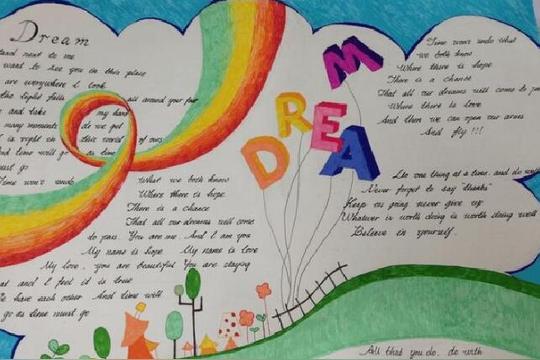 Dream
stand next to me
want to see you in this place
are everywhere I look
the light falls all around your
and take my hand
many moments do we get
is right in this world of ours
And time will go as time
must go
Time won't undo
What we both know
Where there is hope
There is a chance
That all our dreams will come
do pass. You are me And I am you
My name is hope My name is love
My love, you are beautiful You are staying
and I feel it is true
have each other And time will
go as time must go
DREAM
Time won't undo what
we both know
Where there is hope
There is a chance
That all our dreams will come to
Where there is love
And then we can open our arms
And fly !!!
one thing at a time, and do
Never forget to say "thanks"
Keep on going never give up
Whatever is worth doing is worth doing well
Believe in yourself.
All that you do, do with